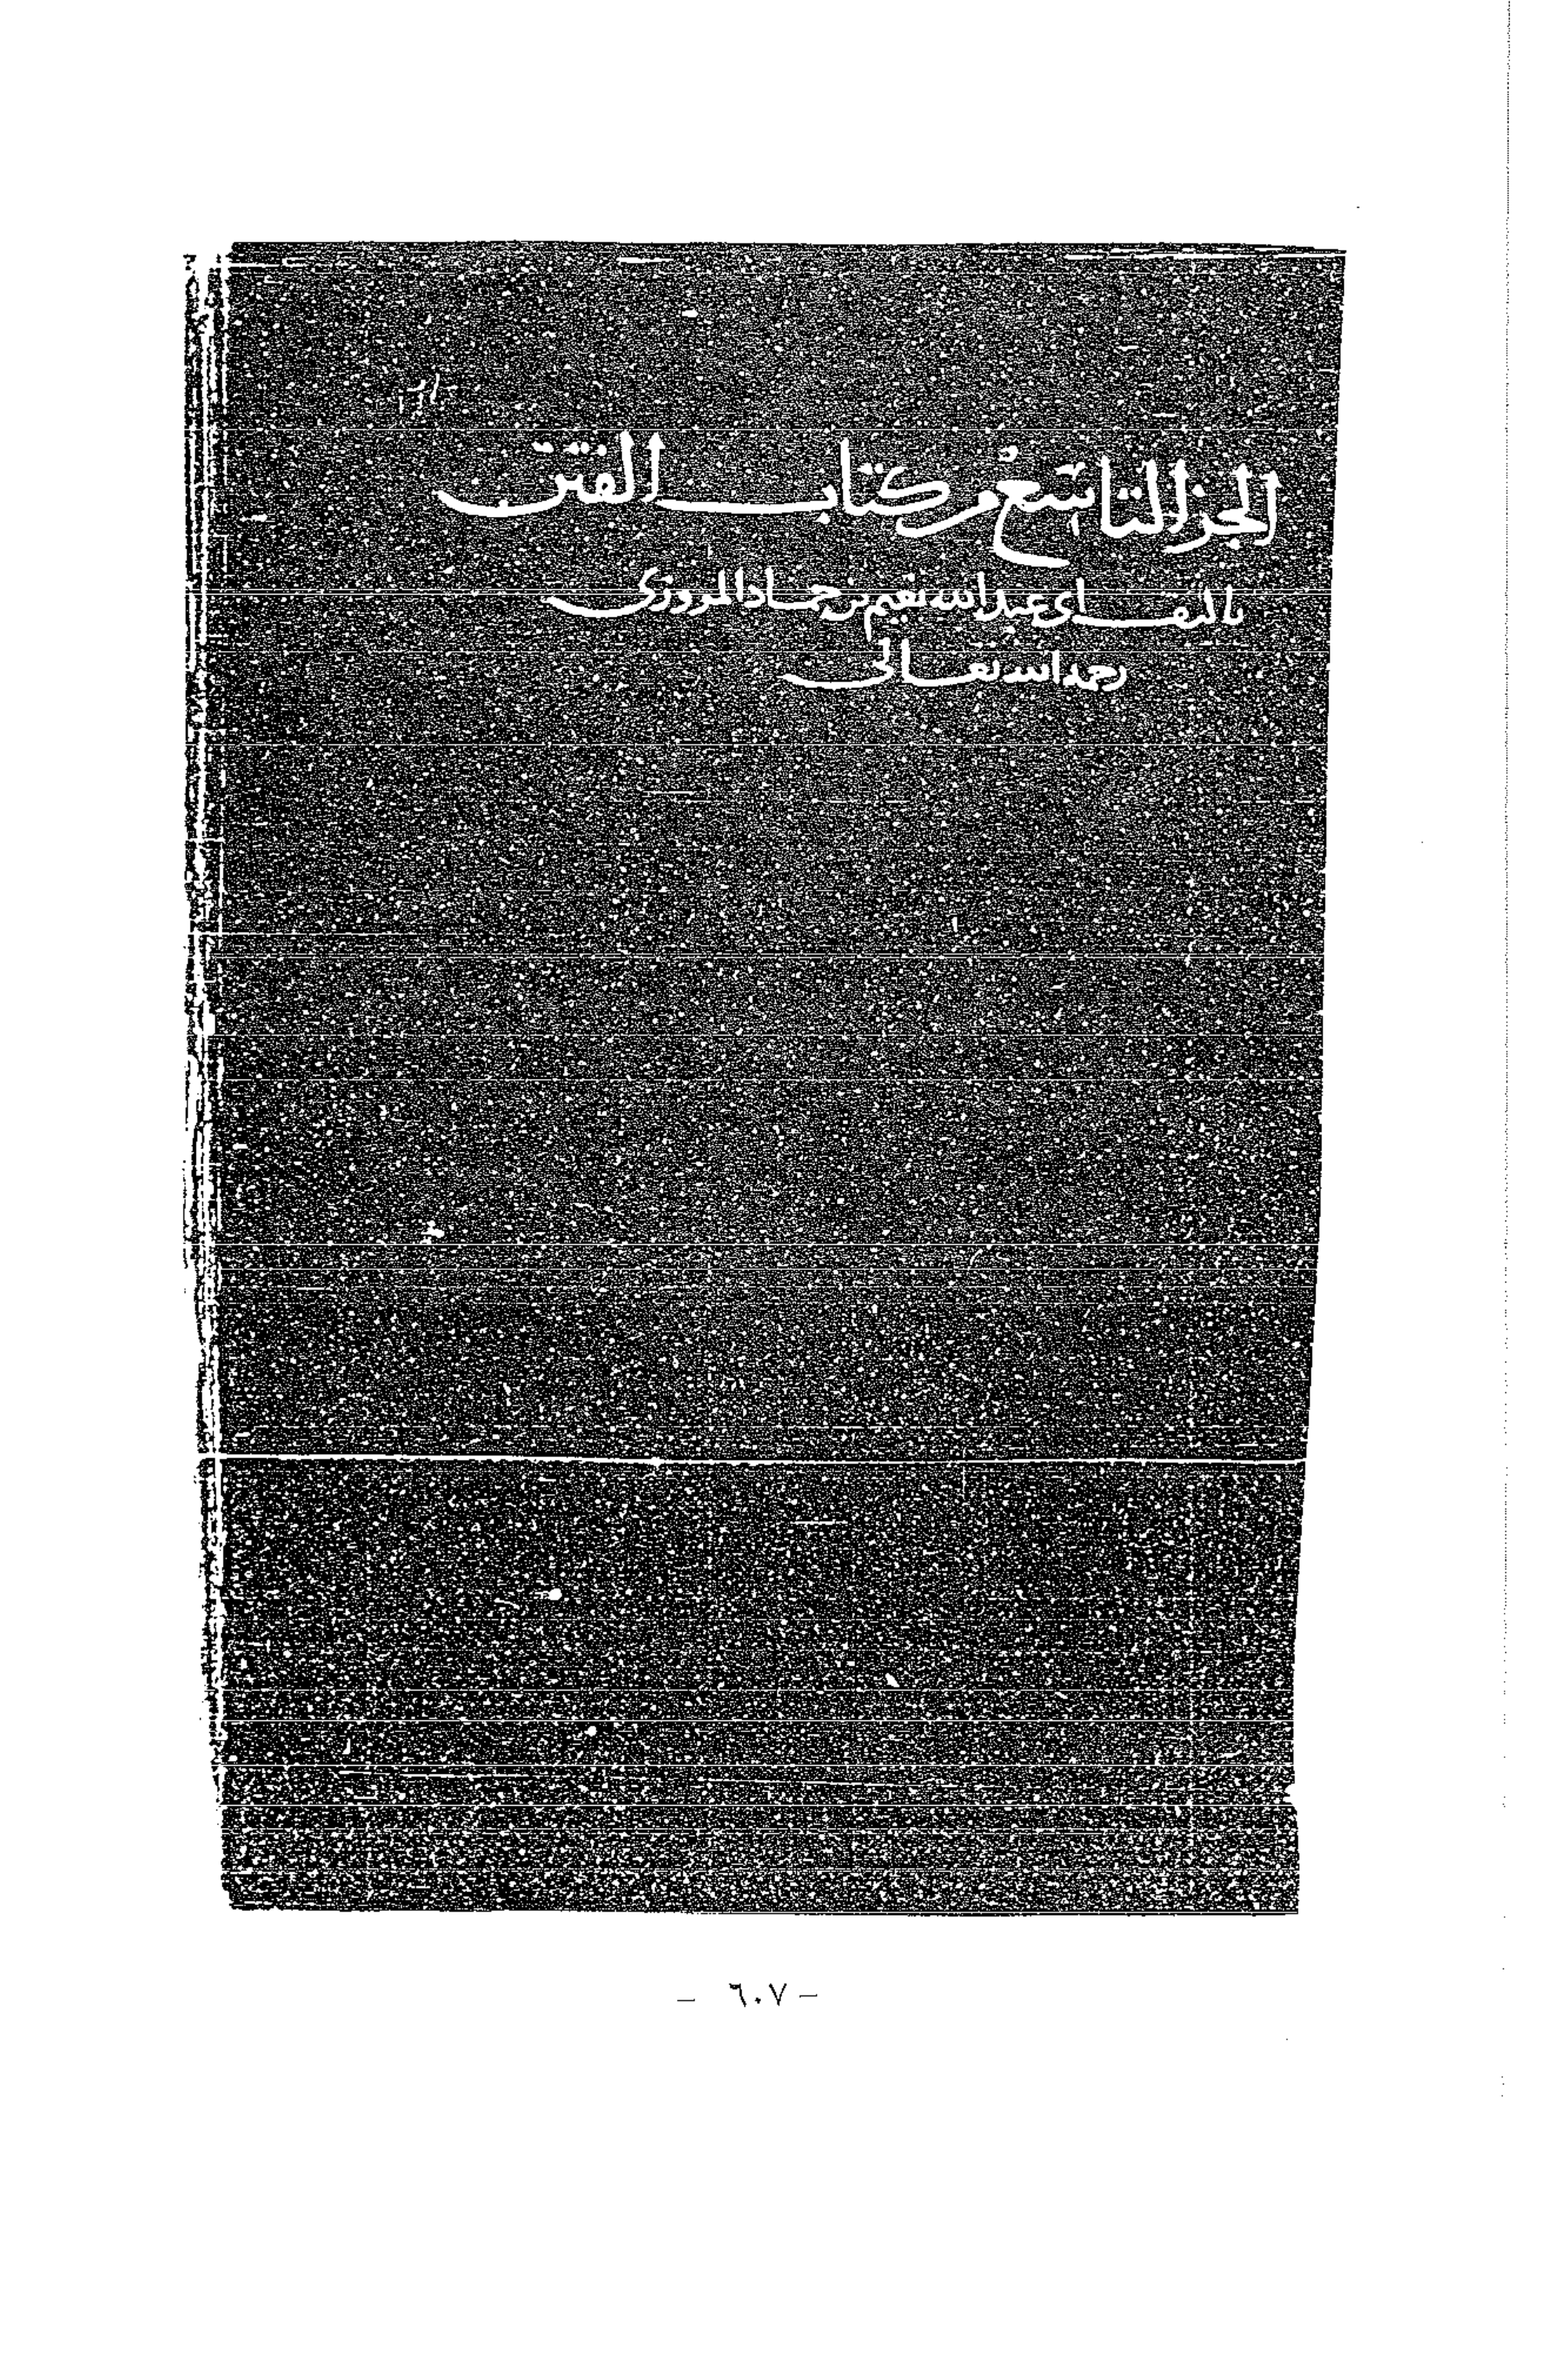 الجز التاسع من كتاب الفتن
تاليف ابى عبد الله نعيم بن حماد المروزى
رحمه الله تعالى
- ٦٠٧ -